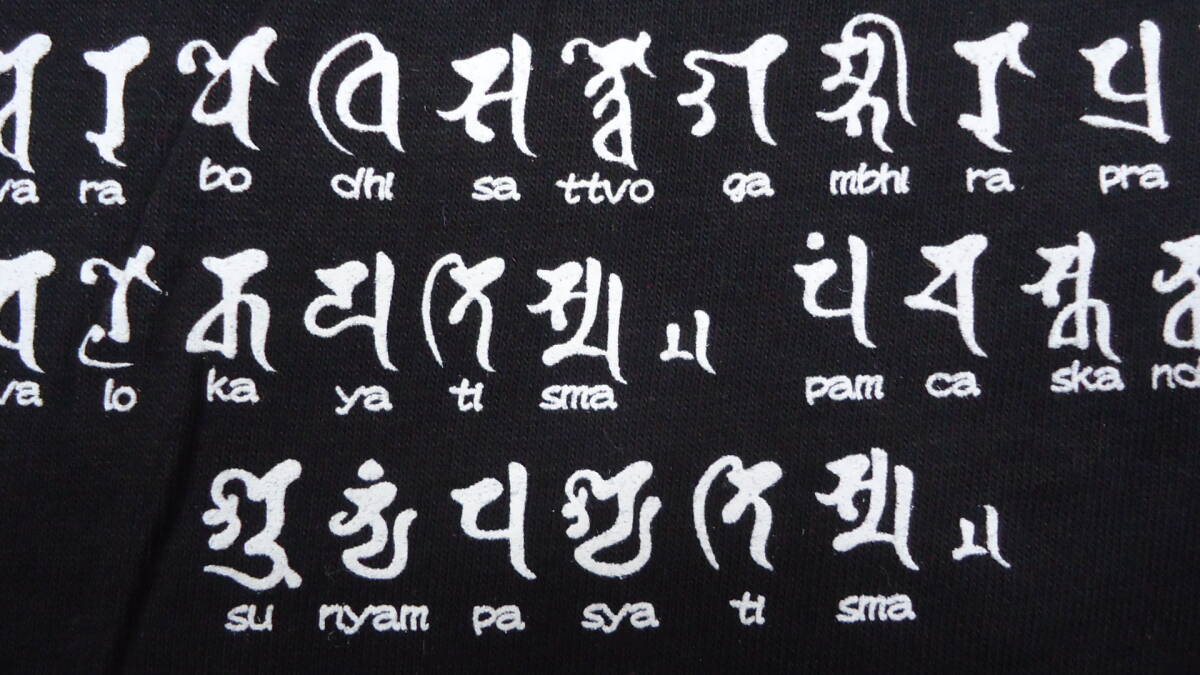 𑖪 𑖨 𑖤𑖺 𑖠𑖰 𑖭 𑖝𑖿𑖝𑖿𑖪𑖺 𑖐 𑖦𑖿𑖥𑖱 𑖨 𑖢𑖿𑖨
va ra bo dhi sa ttvo ga mbhi ra pra
𑖪 𑖩𑖺 𑖎 𑖧 𑖝𑖰 𑖭𑖿𑖦 𑗂 𑖢𑖽 𑖓 𑖭𑖿𑖎
va lo ka ya ti sma pam ca ska
𑖫𑖲 𑖡𑖿𑖧𑖽 𑖢 𑖫𑖿𑖧 𑖝𑖰 𑖭𑖿𑖦 𑗂
su nyam pa sya ti sma